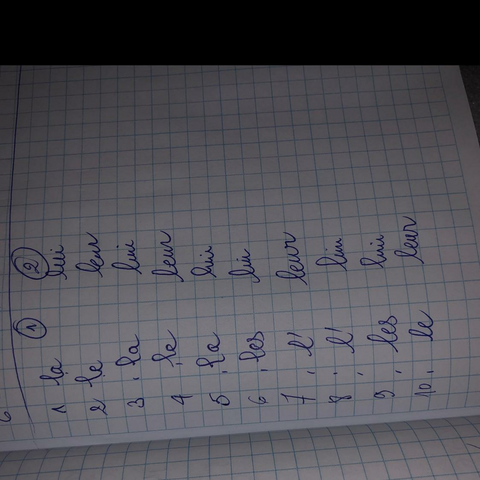 6
① ②
1 la lui
2 le leur
3. la lui
4. le leur
5. la lui
6. les lui
7. l' leur
8. l' lui
9. les lui
10. le leur